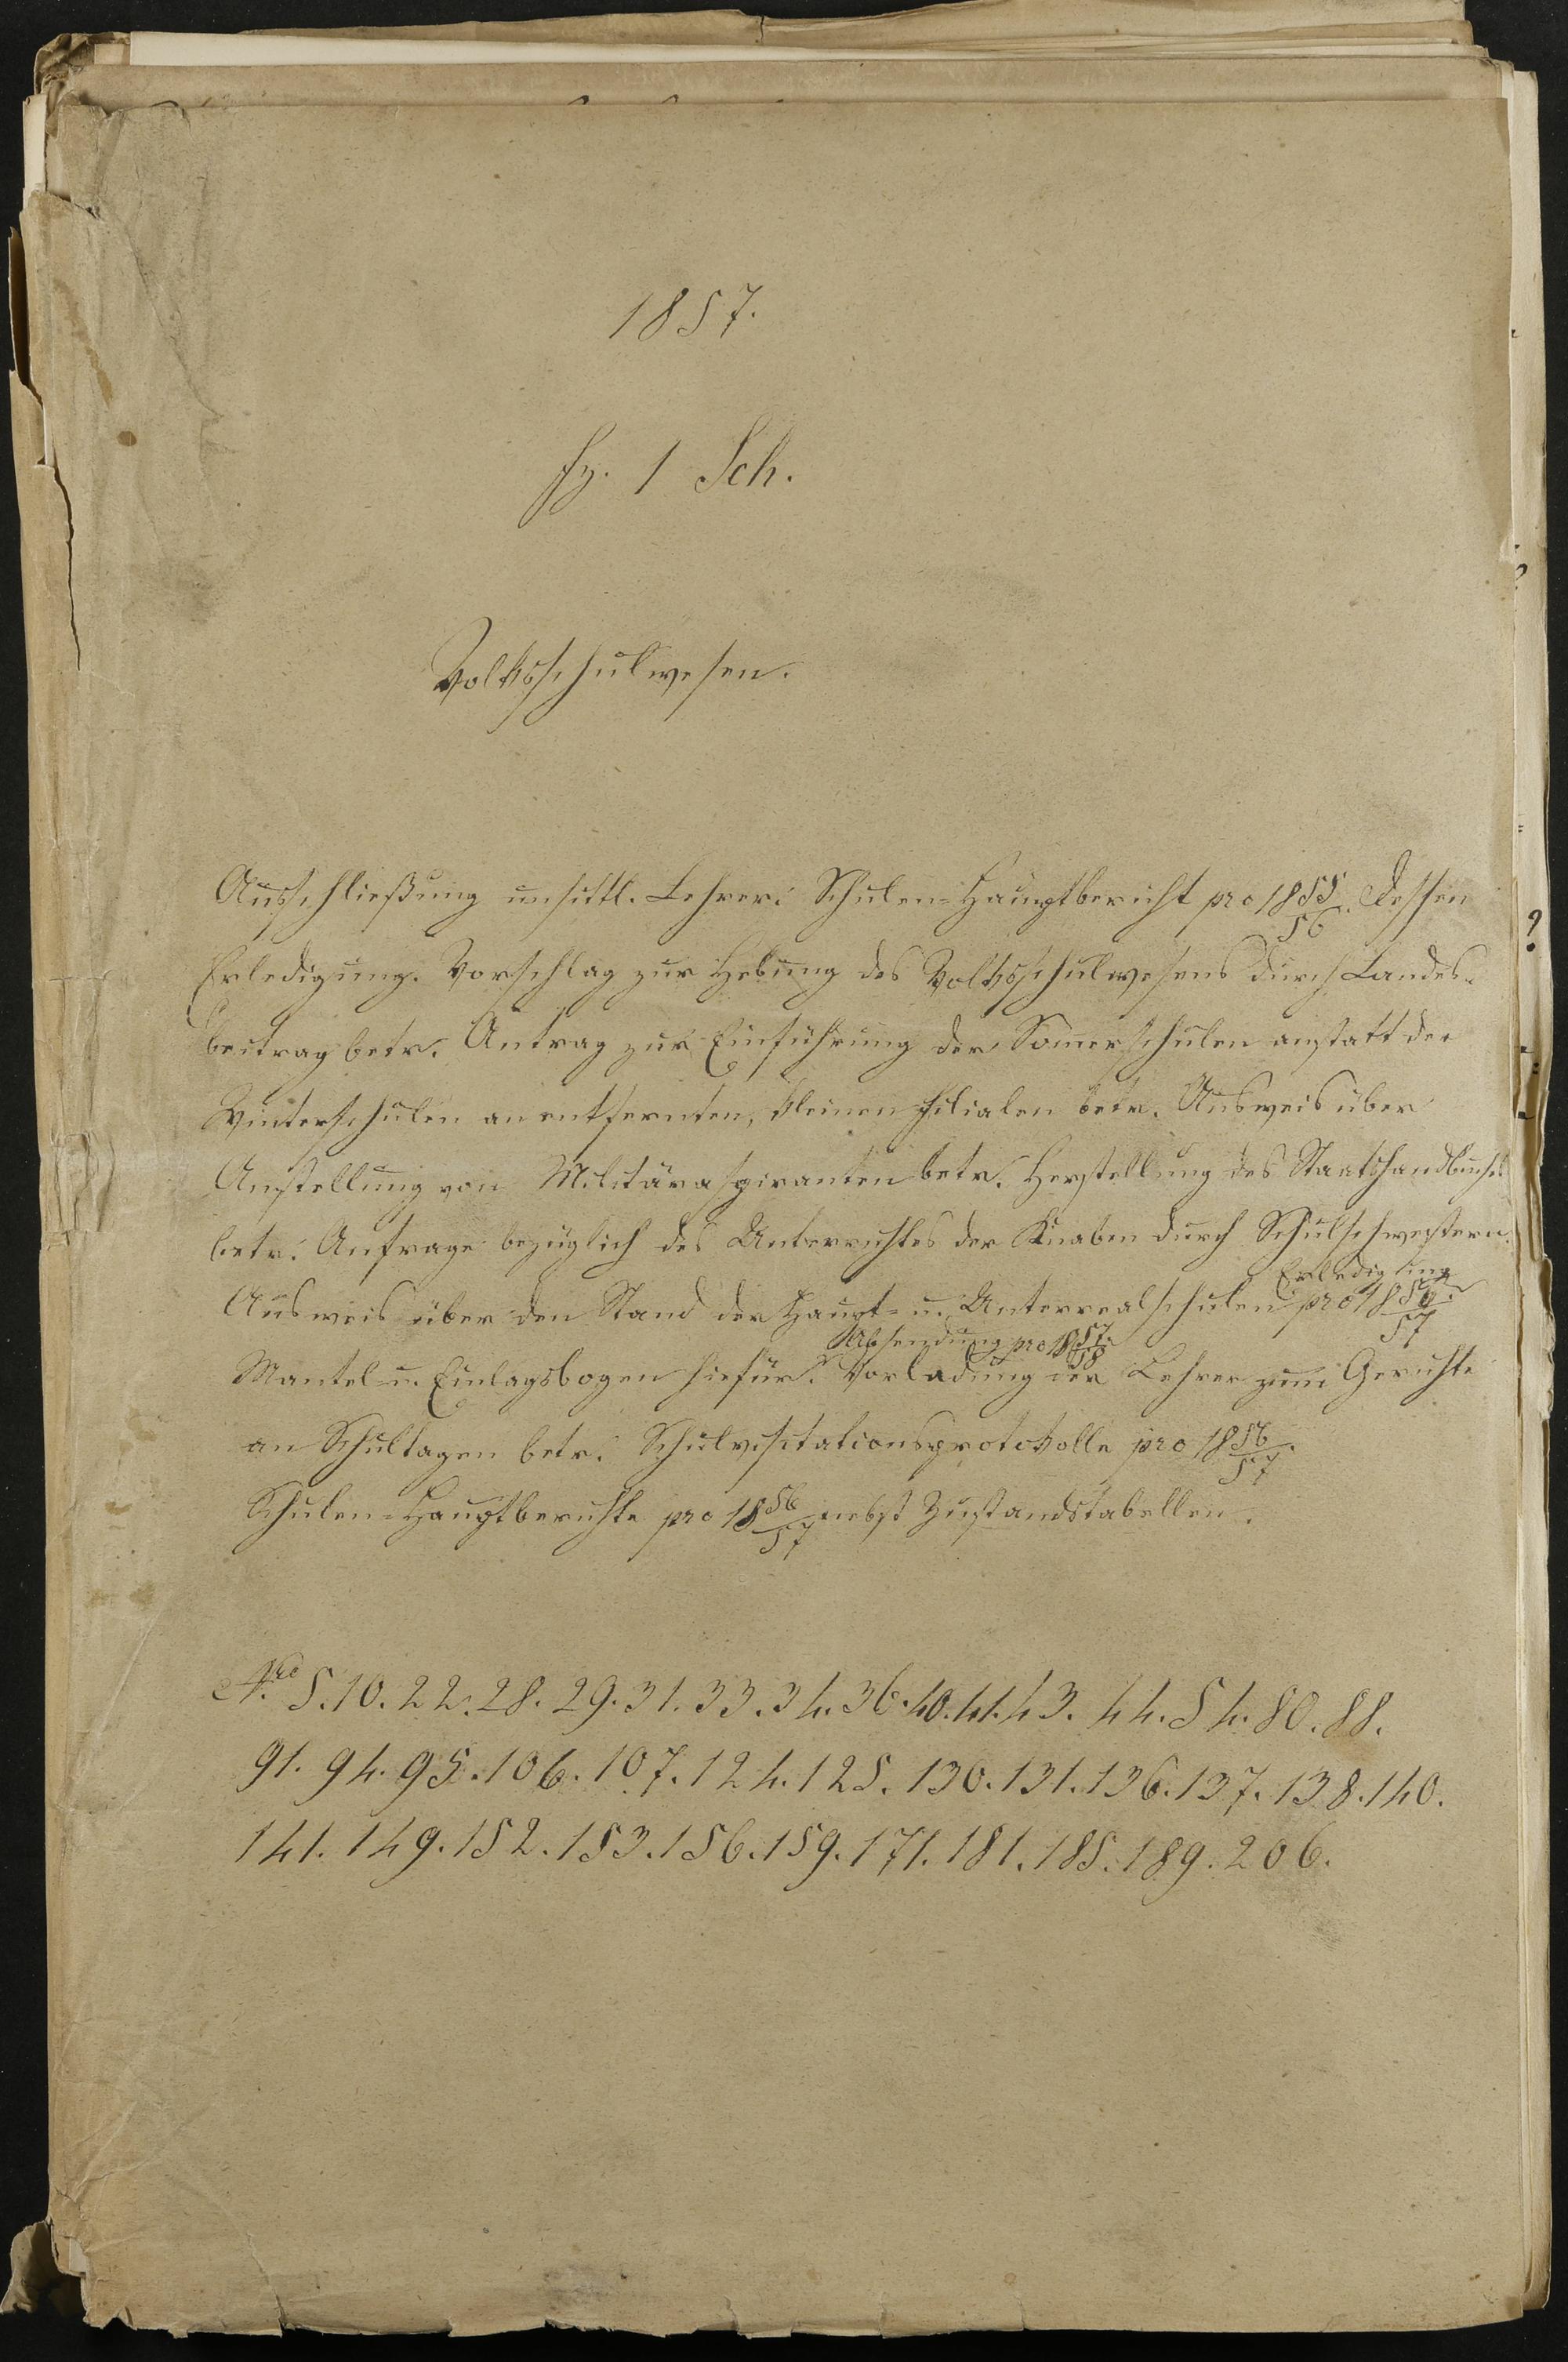 1857.
fz. 1 Sch.
Volksschulwesen.
Ausschließung unsittl. Lehrer. Schulen-Hauptbericht pro 1855/56. Dessen
Erledigung. Vorschlag zur Hebung des Volksschulwesens durch Landes-
beitrag betr. Antrag zur Einführung der Sommerschulen anstatt der
Winterschulen an entfernten, kleinen Filialen betr. Ausweis über
Anstellung von Militäraspiranten betr. Herstellung des Staatshandbuches
betr. Anfrage bezüglich des Unterrichtes der Knaben durch Schulschwestern.
Erledigung
Ausweis über den Stand der Haupt- u. Unterrealschulen pro 1856/57.
Absendung pro 1857/58.
Mantel- u. Einlagsbogen hiefür. Vorladung der Lehrer zum Gerichte
an Schultagen betr. Schulvisitationsprotokolle pro 1856/57.
Schulen-Hauptberichte pro 1856/57 nebst Zustandstabellen.
Nro 5. 10. 22. 28. 29. 31. 33. 34. 36. 40. 41. 43. 44. 54. 80. 88.
91. 94. 95. 106. 107. 124. 125. 130. 131. 136. 137. 138. 140.
141. 149. 152. 153. 156. 159. 171. 181. 185. 189. 206.